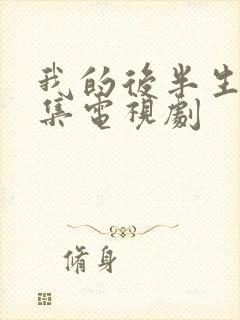 我的後半生
集電視劇
脩身